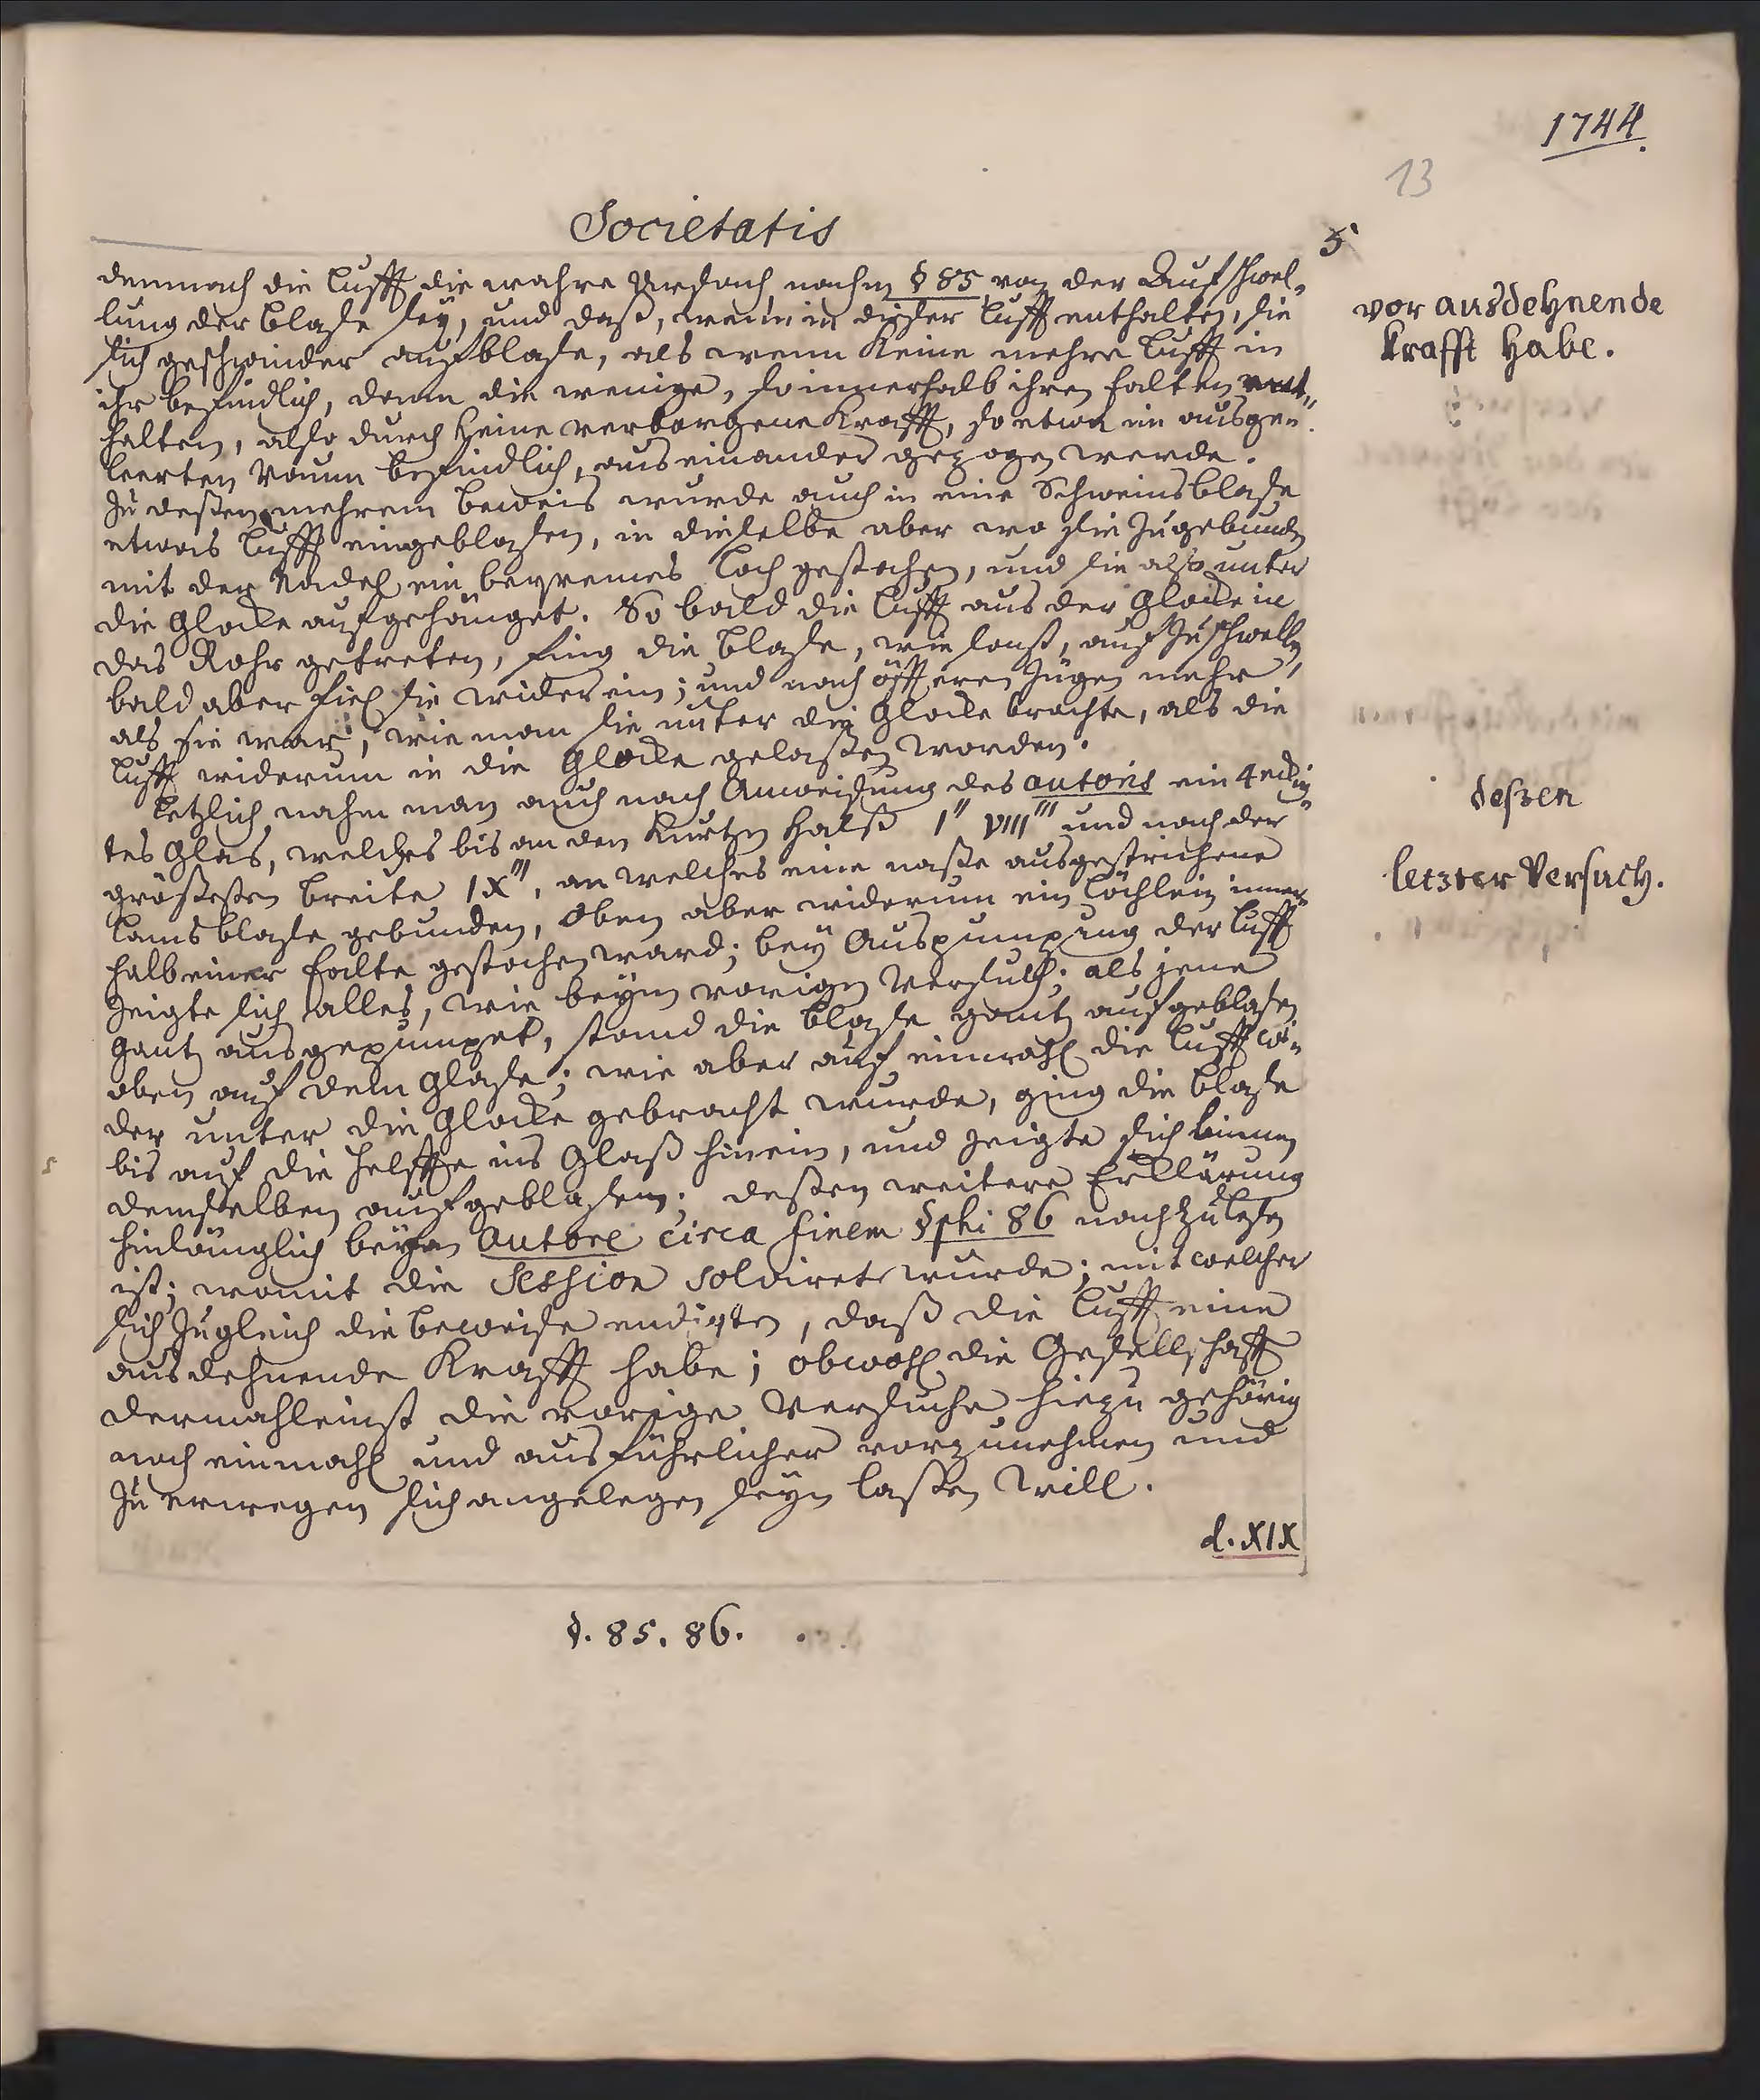 1744.
13
Societatis
5
demnach die Lufft die wahre Ursach nachm § 85 von der Aufschwel-
lung der Blase sey, und daß, wenn in dieser Lufft enthalten, sie
sich geschwinder auffblase, als wenn keine mehre Lufft in
ihr befindlich, denn die wenige, so innerhalb ihren Falten ent-
halten, also durch keine verborgene Krafft, so etwa im ausge-
leerten Raum befindlich, aus einander gezogen werde.
Zu deßen mehrem Beweis wurde auch in eine Schweinsblase
etwas Lufft eingeblasen, in dieselbe aber wo sie zugebunden
mit der Nadel ein bequemes Loch gestochen, und sie also unter
die Glocke aufgehänget. So bald die Lufft aus der Glocke in
das Rohr getreten, fing die Blase, wie sonst, auf zu schwellen,
bald aber fiel sie wider ein; und nach öffteren Zügen mehr,
als sie war, wie man sie unter die Glocke brachte, als die
Lufft widerum in die Glocke gelaßen worden.
Letzlich nahm man auch nach Anweisung des autoris ein 4 eckig-
tes Glas, welches bis an den kurtzen Halß 1'' VIII''' und nach der
größesten Breite IX''', an welches eine naße ausgestrichene
Lamsblase gebunden, oben aber widerum ein Löchlein inner-
halb einer Falte gestochen ward; bey Auspumpung der Lufft
zeigte sich alles, wie beym vorigen Versuch; als jene
gantz ausgepumpet, stand die Blase gantz aufgeblasen
oben auf dem Glase; wie aber auf einmahl die Lufft wi-
der unter die Glocke gebracht wurde, ging die Blase
bis auf die Helffte ins Glaß hinein, und zeigte sich binnen
demselben aufgeblasen; deßen weitere Erklärung
hinlänglich beym Autore circa finem §phi 86 nachzulesen
ist; womit die Session solviret wurde; mit welcher
sich zugleich die Beweise endigten, daß die Lufft eine
ausdehnende Krafft habe; obwohl die Gesellschafft
dermahleinst die vorige Versuche hiezu gehörig
noch einmahl und ausführlicher vorzunehmen und
zu erwegen sich angelegen seyn laßen will.
d. XIX
§. 85. 86.
vor ausdehnende
Krafft habe.
deßen
letzter Versuch.